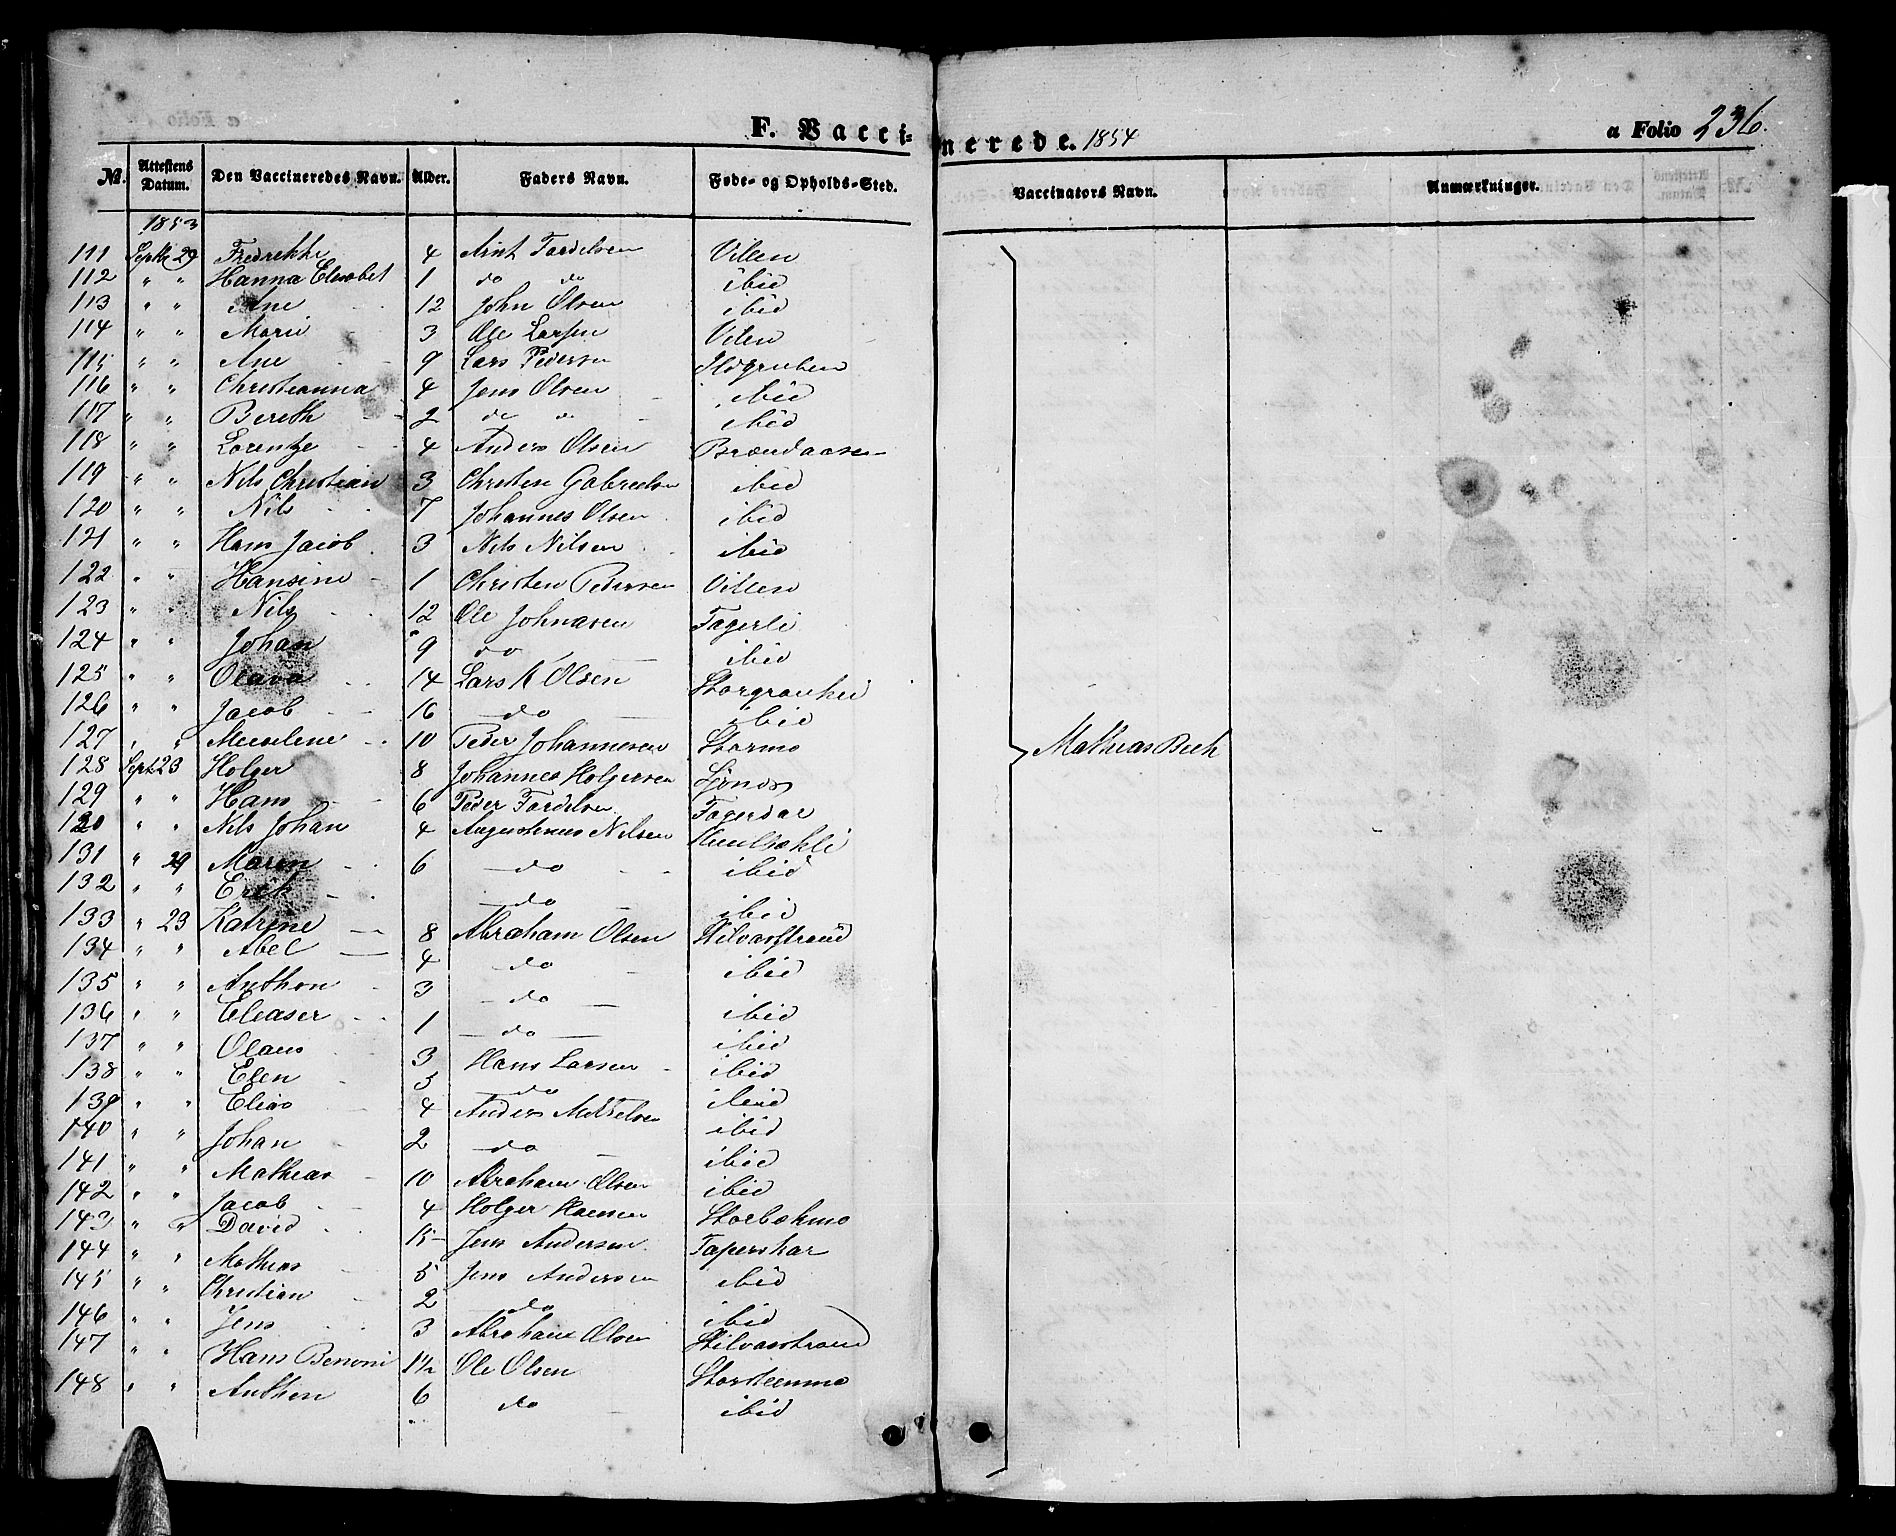 F. Vaccinerede. 1854 a Folio 236.
No. Attestens Datum. Den Vaccineredes Navn. Alder. Faders Navn. Føde- og Opholds-Sted. Vaccinators Navn. Anmærkninger.
1853
111 Septbr 29 Fredrikke 4 Arnt Tordelsen Villen
112 " " Hanna Elisabet 1 do do ibid
113 " " Ane 12 John Olsen ibid
114 " " Marie 3 Ole Larsen Vilen
115 " " Ane 9 Lars Pedersen Ildgruben
116 " " Christianna 4 Jens Olsen ibid
117 " " Bereth 2 do do ibid
118 " " Lorentze 4 Anders Olsen Brændaasen
119 " " Nils Christian 3 Christen Gabrielsen ibid
120 " " Nils 7 Johannes Olsen ibid
121 " " Hans Jacob 3 Nils Nilsen ibid
122 " " Hansine 1 Christen Petersen Villen
123 " " Nils 12 Ole Johnasen Fagerli
124 " " Johan 9 do ibid
125 " " Olava 14 Lars K Olsen
126 " " Jacob 16 do ibid
127 " " 10 Peder Johannesen Stormo
Mathias Bech
128 Sept 23 Holger 8 Johannes Holgersen
129 " " Hans 6 Peder Tordelsen Fagerdal
130 " " Nils Johan 4 Augustinus Nilsen
131 " 29 Maren 6 do ibid
132 " " Erik do ibid
133 " 23 Katrine 8 Abraham Olsen Hilvasstrand
134 " " Abel 4 do ibid
135 " " Anthon 3 do ibid
136 " " Eleaser 1 do ibid
137 " " Olaus 3 Hans Larsen ibid
138 " " Elen 5 do ibid
139 " " Elias 4 Anders Mikkelsen ibid
140 " " Johan 2 do ibid
141 " " Mathias 10 Abraham Olsen ibid
142 " " Jacob 4 Holger Hansen Storbækmo
143 " " David 15 Jens Andersen Tapershar
144 " " Mathias 5 Jens Andersen ibid
145 " " Christian 2 do ibid
146 " " Jens 3 Abraham Olsen Hilvasstrand
147 " " Hans Benoni 1½ Ole Olsen Storsteenmo
148 " " Anthon 6 do ibid